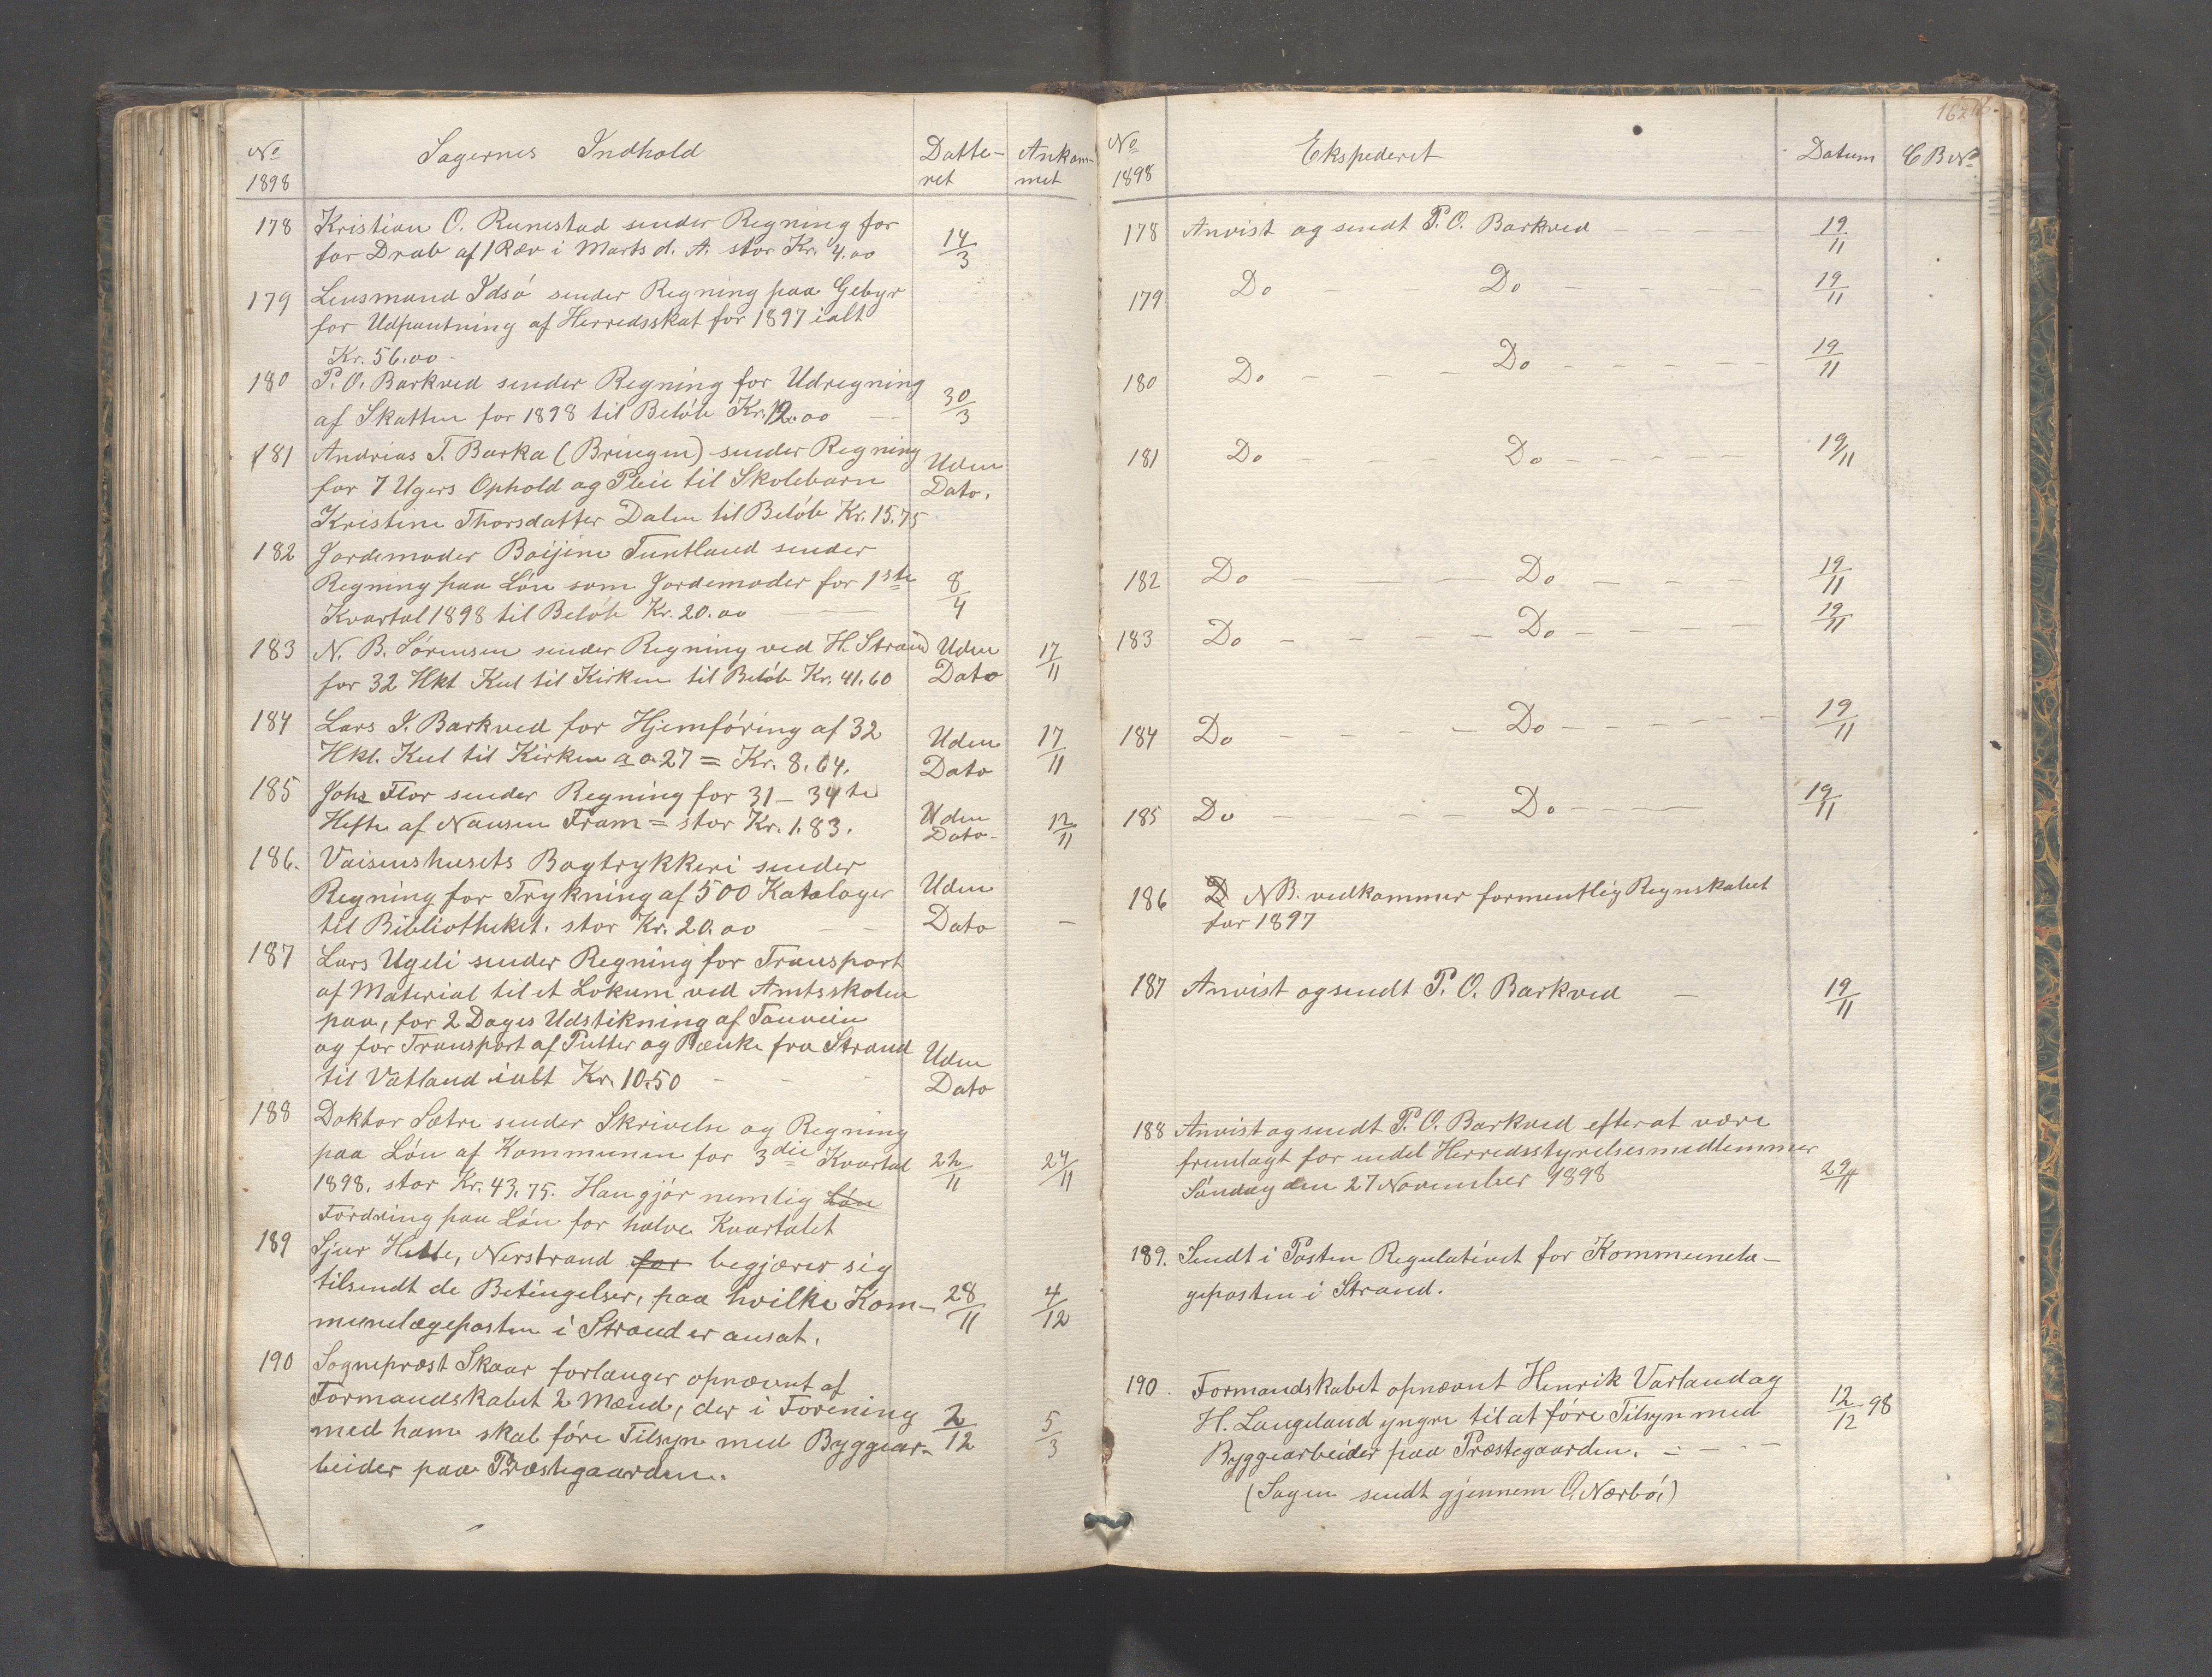 No 1898 Sagernes Indhold Datte-ret Ankom-met
178 Kristian O. Runestad sender Regning for 14/3
for Drab af 1 Ræv i Marts d. A. stor Kr. 4.00
179 Lensmand Idsö sender Regning paa Gebyr
for Udpantning af Herredsskat for 1897 ialt
Kr. 56.00
180 P. O. Barkved sender Regning for Udregning 30/3
af Skatten for 1898 til Belöb Kr. 12.00
181 Andreas T. Barka (Bringen) sender Regning Uden
for 7 Ugers Ophold og Pleie til Skolebarn Dato.
Kristine Thorsdatter Dalen til Belöb Kr. 15.75
182 Jordemoder Boijine Tuntland sender
Regning paa Lön som Jordemoder for 1ste 8/4
Kvartal 1898 til Belöb Kr. 20.00
183 N. B. Sörensen sender Regning ved H. Strand Uden 17/11
for 32 Hkt Kul til Kirken til Belöb Kr. 41.60 Dato
184 Lars I. Barkved for Hjemföring af 32 Uden 17/11
Hkl. Kul til Kirken a 0.27 = Kr. 8.64. Dato
185 Johs Flor sender Regning for 31 - 34te Uden 12/11
Hefte af Nansen Fram = stor Kr. 1.83. Dato
186. Vaisenhusets Bogtrykkeri sender
Regning for Trykning af 500 Kataloger Uden
til Bibliotheket. stor Kr. 20.00 Dato -
187 Lars Ugeli sender Regning for Transport
af Material til et Lokum ved Amtsskolen
paa, for 2 Dages Udstikning af Tauveien
og for Transport af Pulter og Bænke fra Strand Uden
til Vatland ialt Kr. 10.50 Dato
188 Doktor Sætre sender Skrivelse og Regning
paa Lön af Kommunen for 3die Kvartal 22/11 24/11
1898. stor Kr. 43.75. Han gjör nemlig Lön
Fordring paa Lön for halve Kvartalet
189 Sjur Hette, Nerstrand for begjærer sig
tilsendt de Betingelser, paa hvilke Kom- 28/11 4/12
munelægeposten i Strand er ansat.
190 Sogneprest Skaar forlanger opnævnt af
Formandskabet 2 Mænd, der i Forening 2/12 5/3
med ham skal före Tilsyn med Byggear-
beider paa Præstegaarden.
No 1898 Ekspederet Datum C B No
178 Anvist og sendt P. O. Barkved 19/11
179 Do Do 19/11
180 Do Do 19/11
181 Do Do 19/11
182 Do Do 19/11
183 Do Do 19/11
184 Do Do 19/11
185 Do Do 19/11
186 D NB. vedkommer formentlig Regnskabet
for 1897
187 Anvist og sendt P. O. Barkved 19/11
188 Anvist og sendt P. O. Barkved efterat være
fremlagt for endel Herredsstyrelsesmedlemmer 29/11
Söndag den 27 November 1898
189. Sendt i Posten Regulativet for Kommunelæ-
geposten i Strand.
190. Formandskabet opnævnt Henrik Varland og 12/12 98
H. Langeland yngre til at före Tilsyn med
Byggearbeider paa Præstegaarden.
(Sagen sendt gjennem O. Nærbö)